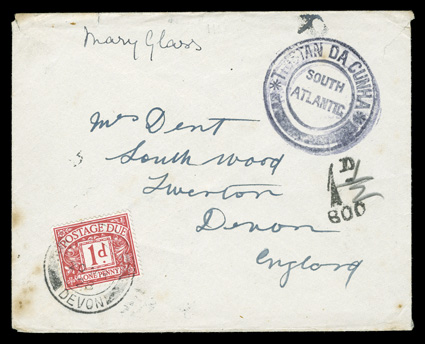 Mary Glass
TRISTAN DA CUNHA
SOUTH
ATLANTIC
Mrs Dent
South Wood
Tiverton
Devon
England
D
800
POSTAGE DUE
1d
ONE PENNY
DEVON